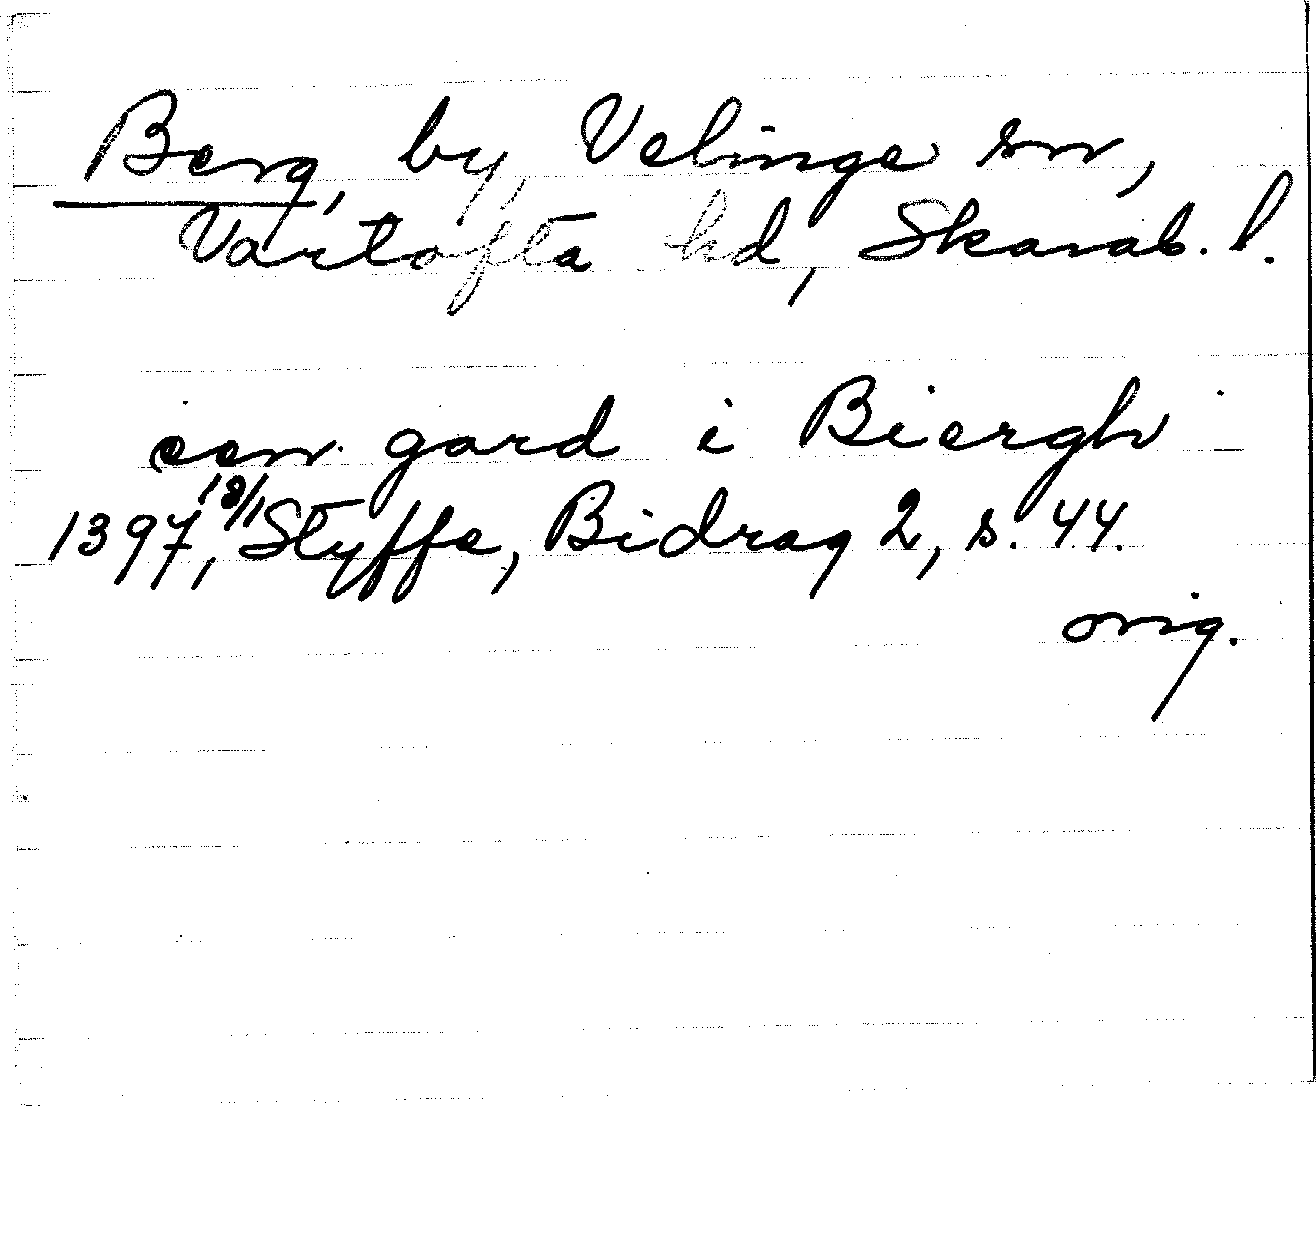 Berg, by, Velinge sn,
Vartofta hd, Skarab. l.
een gard i Biergh
1397, 18/1 Styffe, Bidrag 2, s. 44.
orig.